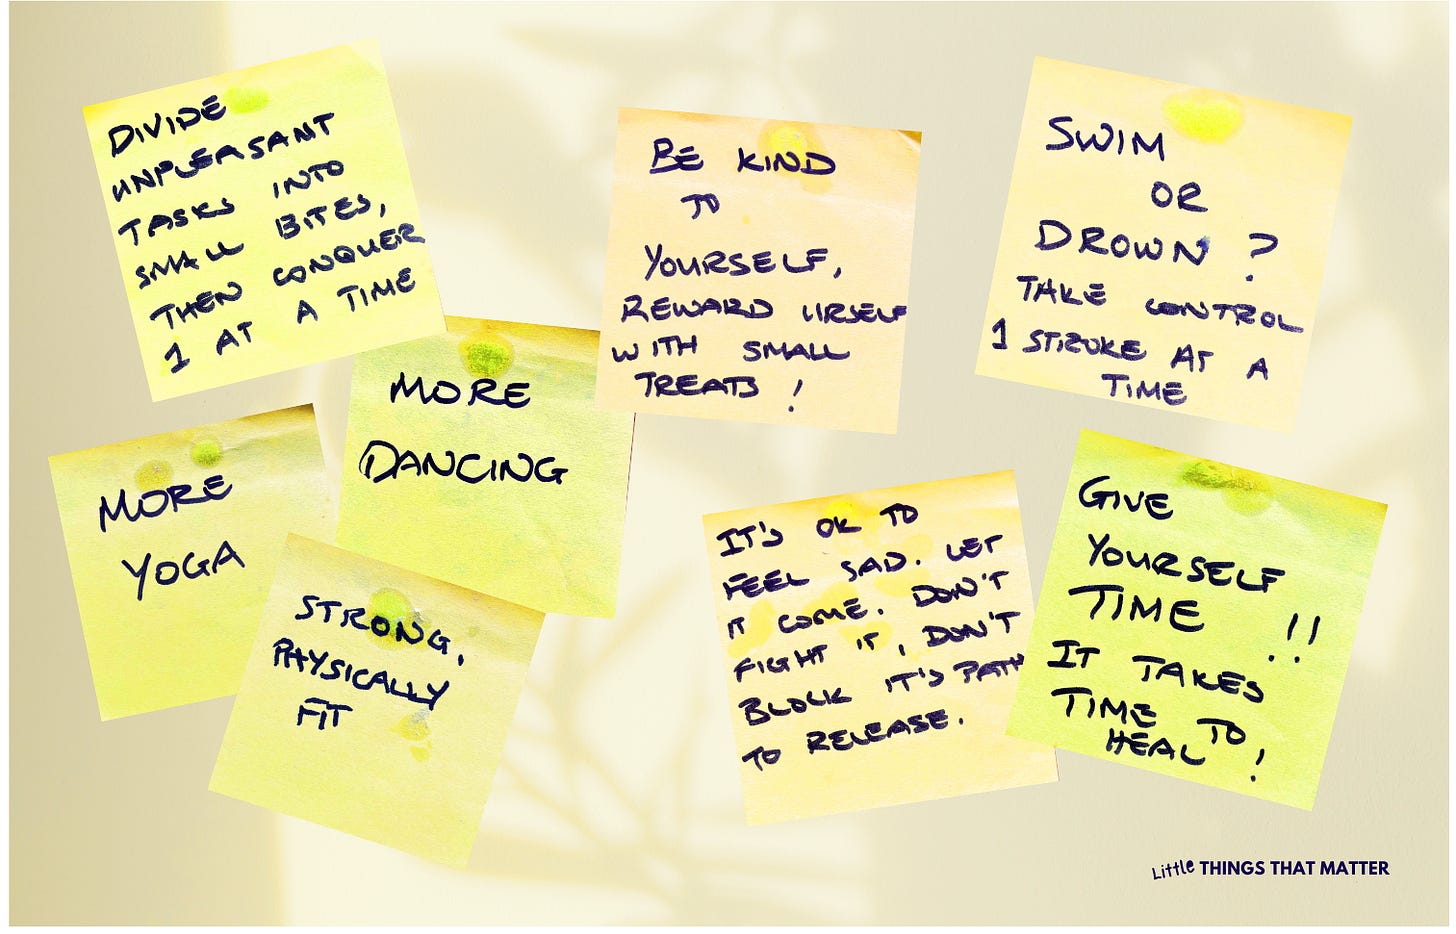 DIVIDE
UNPLEASANT
TASKS INTO
SMALL BITES,
THEN CONQUER
1 AT A TIME
BE KIND
TO
YOURSELF,
REWARD URSELF
WITH SMALL
TREATS !
SWIM
OR
DROWN ?
TAKE CONTROL
1 STROKE AT A
TIME
MORE
DANCING
MORE
YOGA
STRONG,
PHYSICALLY
FIT
IT'S OK TO
FEEL SAD. LET
IT COME. DON'T
FIGHT IT, DON'T
BLOCK IT'S PATH
TO RELEASE.
GIVE
YOURSELF
TIME !!
IT TAKES
TIME TO
HEAL !
Little THINGS THAT MATTER